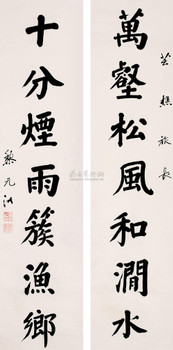 芸樵旅長
萬壑松風和澗水
十分煙雨簇漁鄉
黎元洪